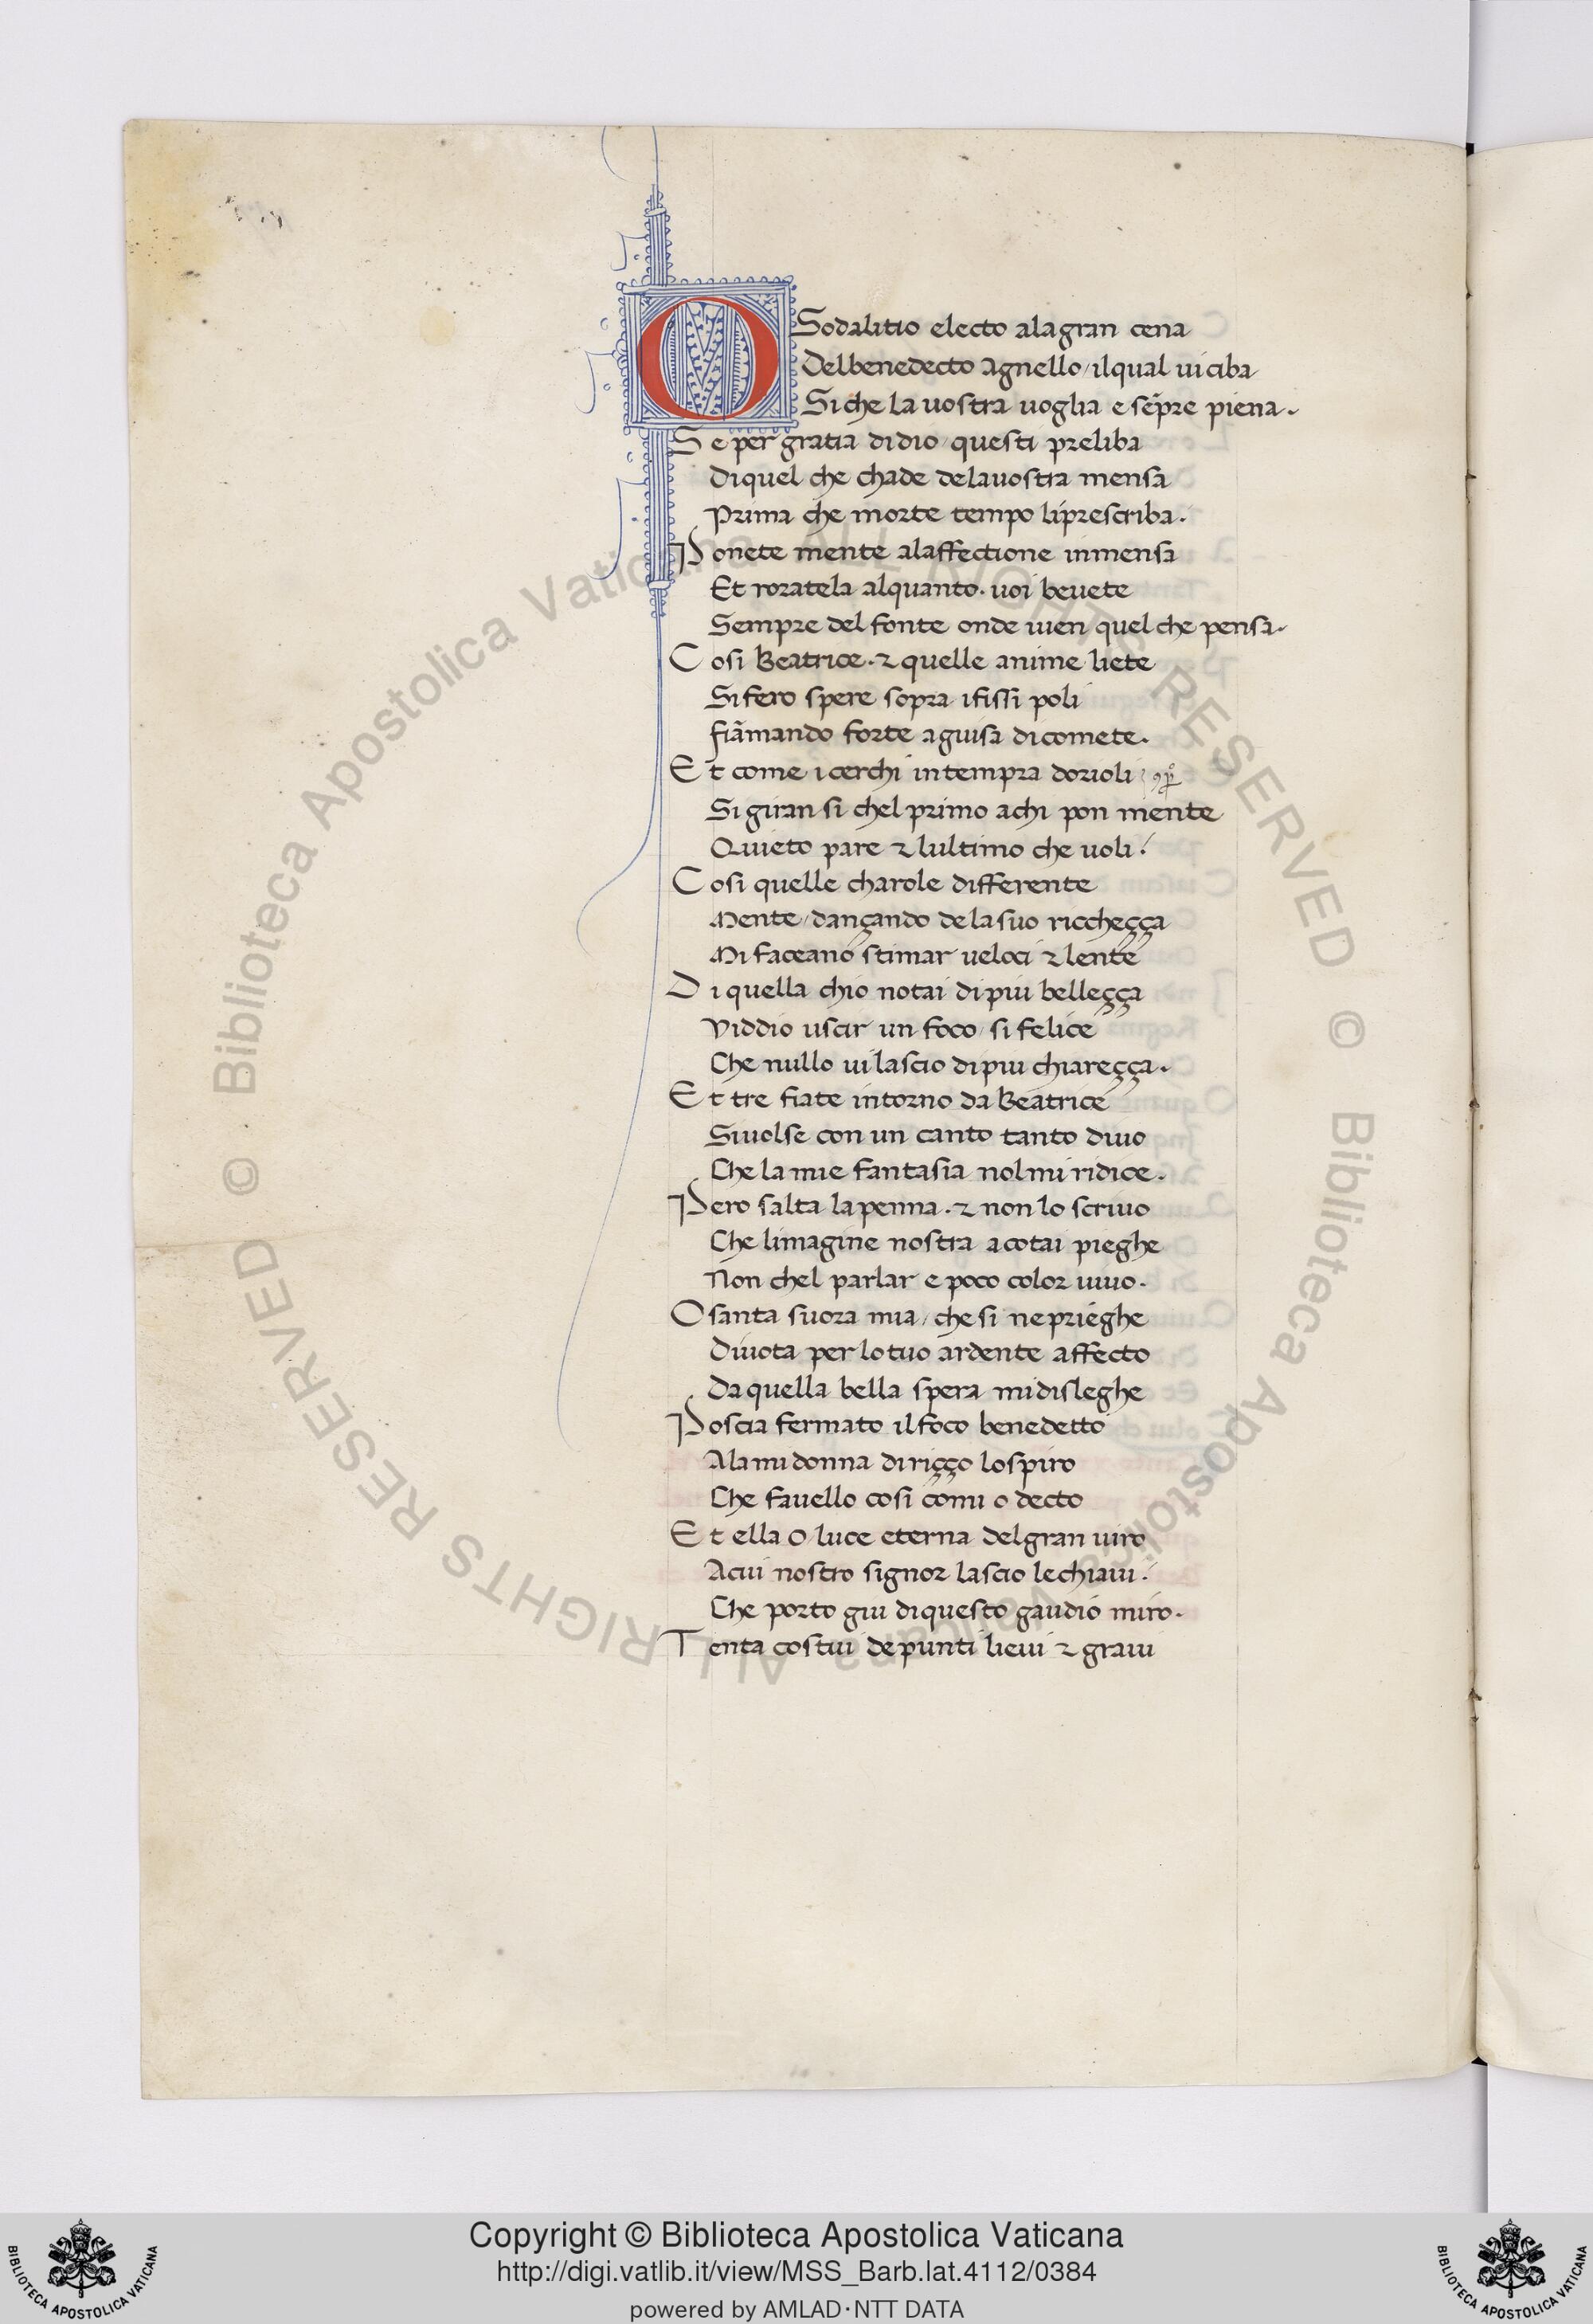 O Sodalitio electo alagran cena
Delbenedecto agnello/ilqual uiciba
Si che la uostra uoglia e sẽpre piena.
Se per gratia didio/questi preliba
Diquel che chade delauostra mensa
Prima che morte tempo liprescriba.
Ponete mente alaffectione inmensa
Et roratela alquanto. uoi beuete
Sempre del fonte onde uien quel che pensa.
Cosi Beatrice. ⁊ quelle anime liete
Sifero spere sopra ifissi poli
fiãmando forte aguisa dicomete.
Et come icerchi intempra dorioli
Si giran si chel primo achi pon mente
Quieto pare ⁊ lultimo che uoli.
Cosi quelle charole differente
Mente/dançando delasuo riccheçça
Mi faceano stimar ueloci ⁊ lente
Di quella chio notai dipiu belleçça
Viddio uscir un foco/si felice
Che nullo uilascio dipiu chiareçça.
Et tre fiate intorno da Beatrice
Siuolse con un canto tanto diuo
Che la mie fantasia nolmi ridice.
Pero salta lapenna. ⁊ non lo scriuo
Che limagine nostra acotai pieghe
Non chel parlar e poco color uiuo.
O santa suora mia/che si neprieghe
Diuota per lotuo ardente affecto
Da quella bella spera midisleghe
Poscia fermato ilfoco benedetto
Alami donna diriçço lospiro
Che fauello cosi comi o decto
Et ella o luce eterna delgran uiro
Acui nostro signor lascio lechiaui.
Che porto giu diquesto gaudio miro.
Tenta costui depunti lieui ⁊ graui
© Biblioteca Apostolica Vaticana ALL RIGHTS RESERVED © Biblioteca Apostolica Vaticana ALL RIGHTS RESERVED
Copyright © Biblioteca Apostolica Vaticana
http://digi.vatlib.it/view/MSS_Barb.lat.4112/0384
powered by AMLAD·NTT DATA
BIBLIOTECA APOSTOLICA VATICANA
BIBLIOTECA APOSTOLICA VATICANA